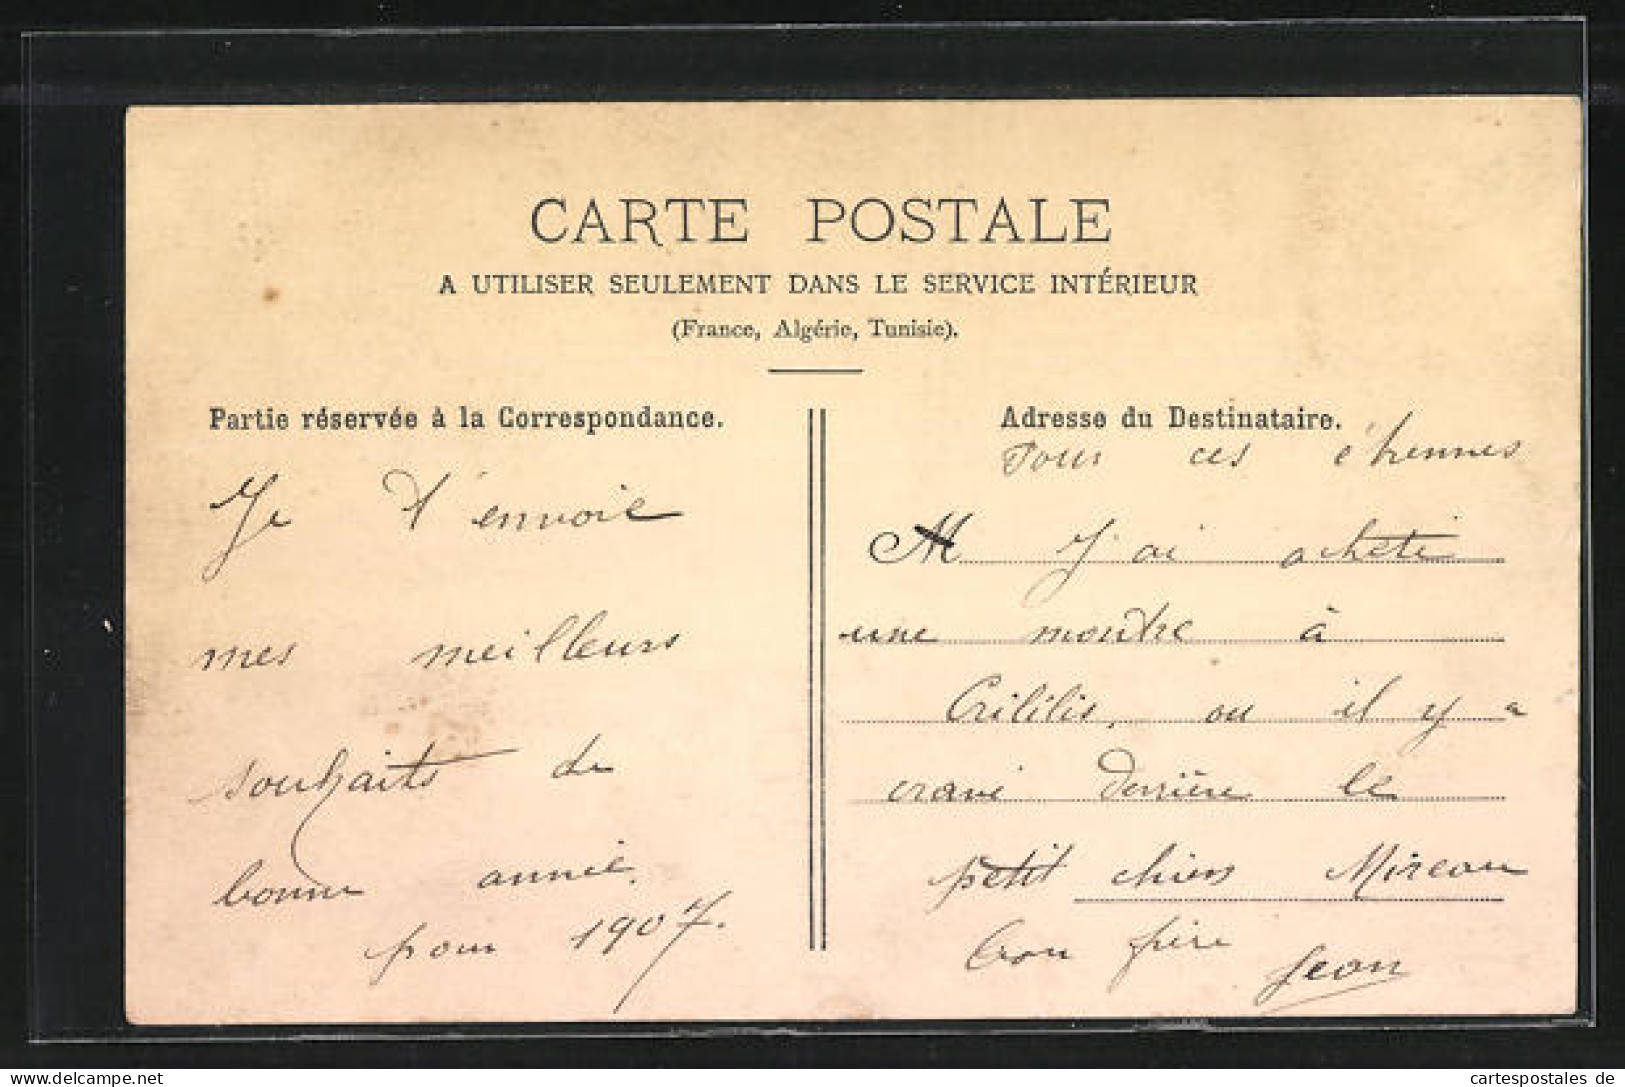 CARTE POSTALE
A UTILISER SEULEMENT DANS LE SERVICE INTÉRIEUR
(France, Algérie, Tunisie).
Partie réservée à la Correspondance.
Je t'envoie
mes meilleurs
souhaits de
bonne année.
pour 1907.
Adresse du Destinataire.
Pour ces étrennes
M J'ai acheté
une montre à
ou il y a
gravé derrière le
petit chien
Ton frère
Jean
delcampe.net
cartespostales de